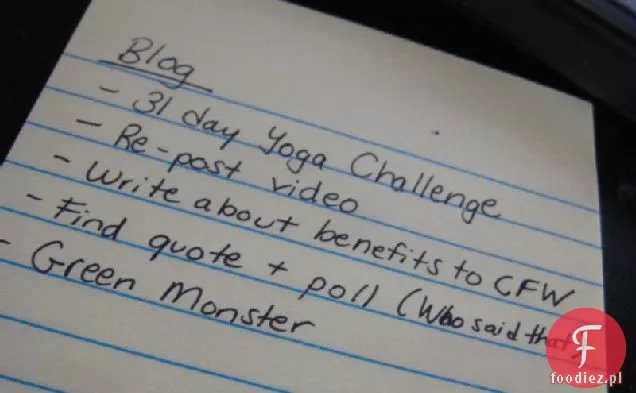 Blog
- 31 day Yoga Challenge
- Re-post video
- Write about benefits to CFW
- Find quote + poll (Who said that
- Green Monster
F
foodiez.pl